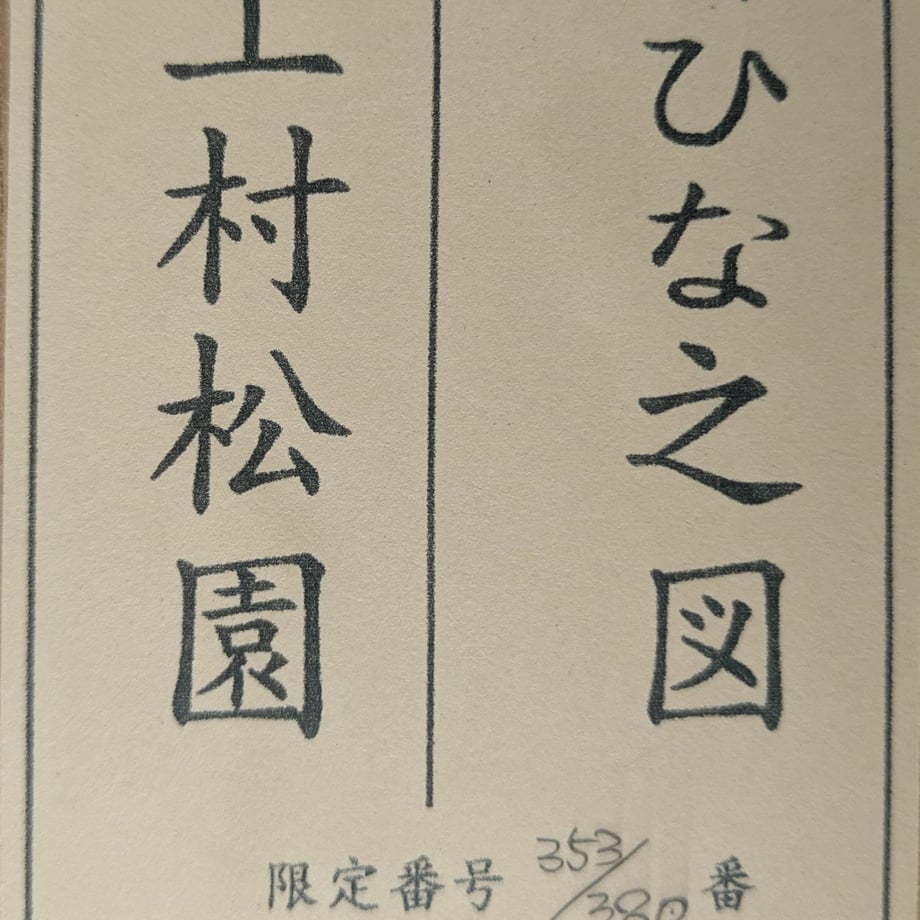 ひな之図
上村松園
限定番号 353/380 番